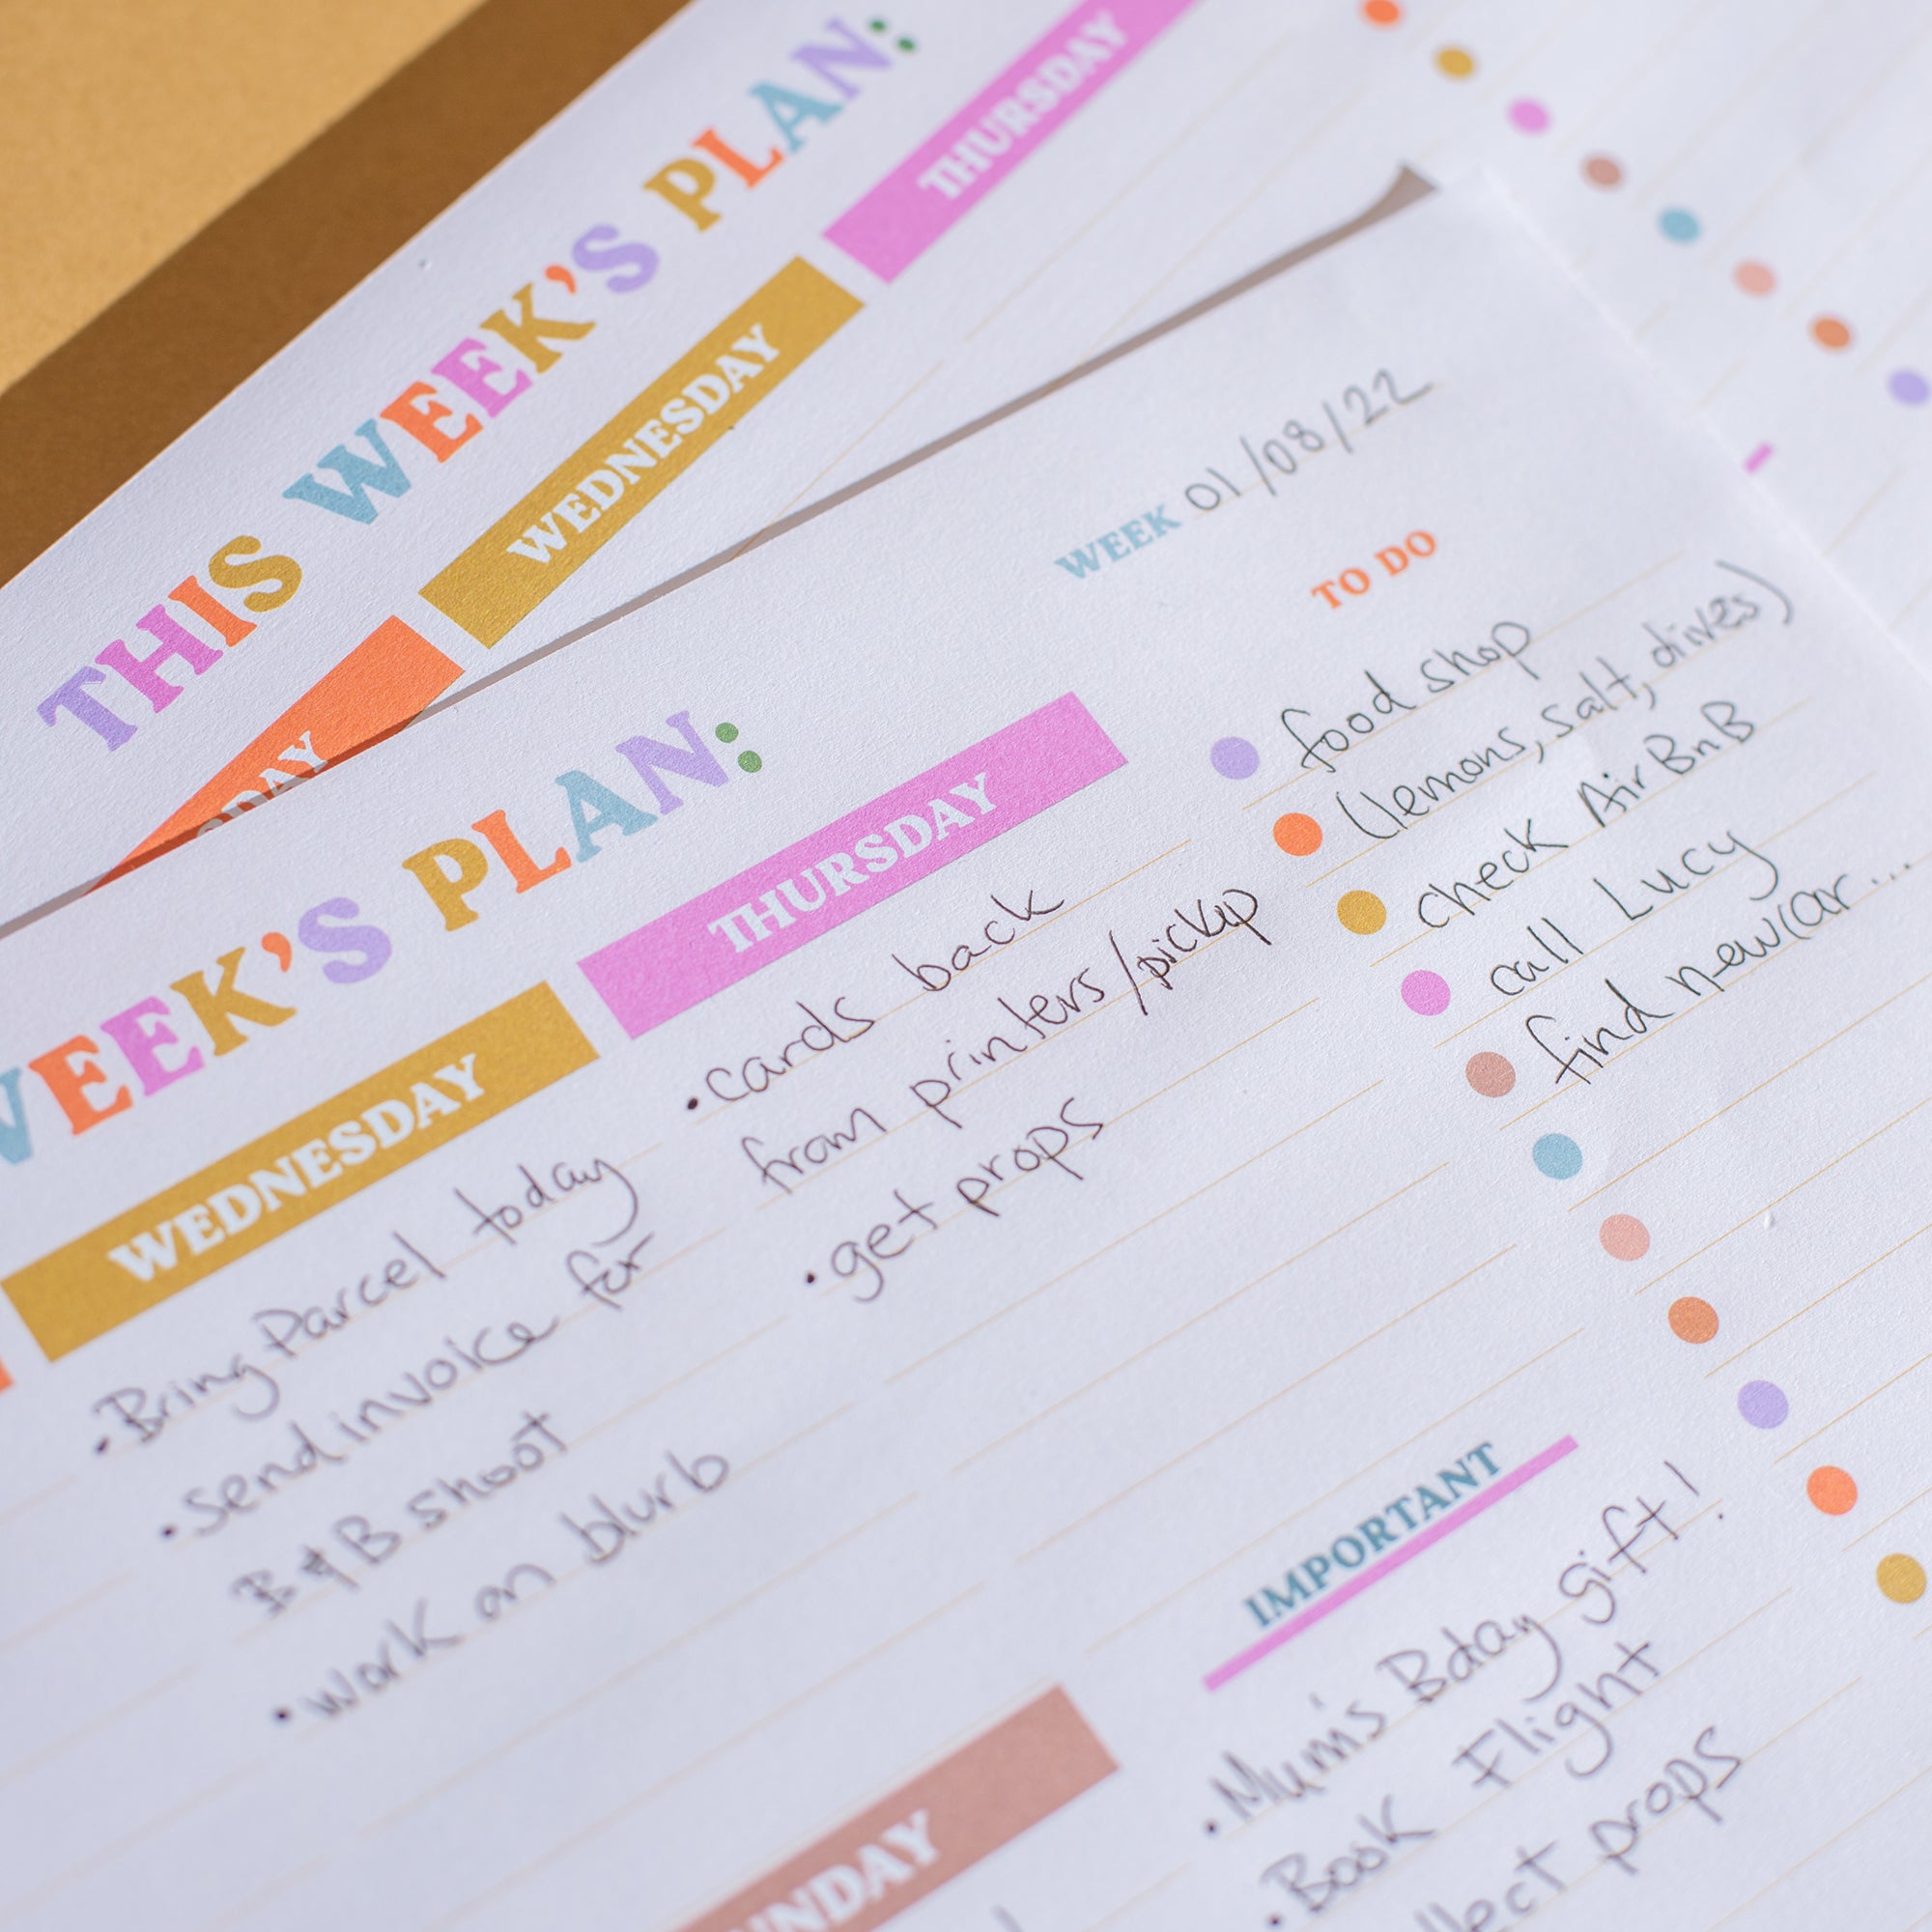 THIS WEEK'S PLAN:
WEDNESDAY
THURSDAY
WEEK 01/08/22
WEEK'S PLAN:
WEDNESDAY
• Bring Parcel today
• send invoice for
B & B shoot
• work on blurb
THURSDAY
• cards back
from printers/pickup
• get props
TO DO
food shop
(lemons, salt, olives)
check AirBnB
call Lucy
find new car...
IMPORTANT
• Mum's Bday gift!
• Book Flight
props